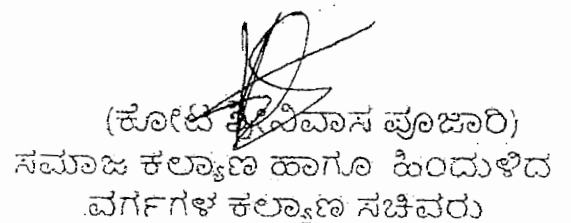 (ಕೋಟ ಶ್ರೀನಿವಾಸ ಪೂಜಾರಿ)
ಸಮಾಜ ಕಲ್ಯಾಣ ಹಾಗೂ ಹಿಂದುಳಿದ
ವರ್ಗಗಳ ಕಲ್ಯಾಣ ಸಚಿವರು